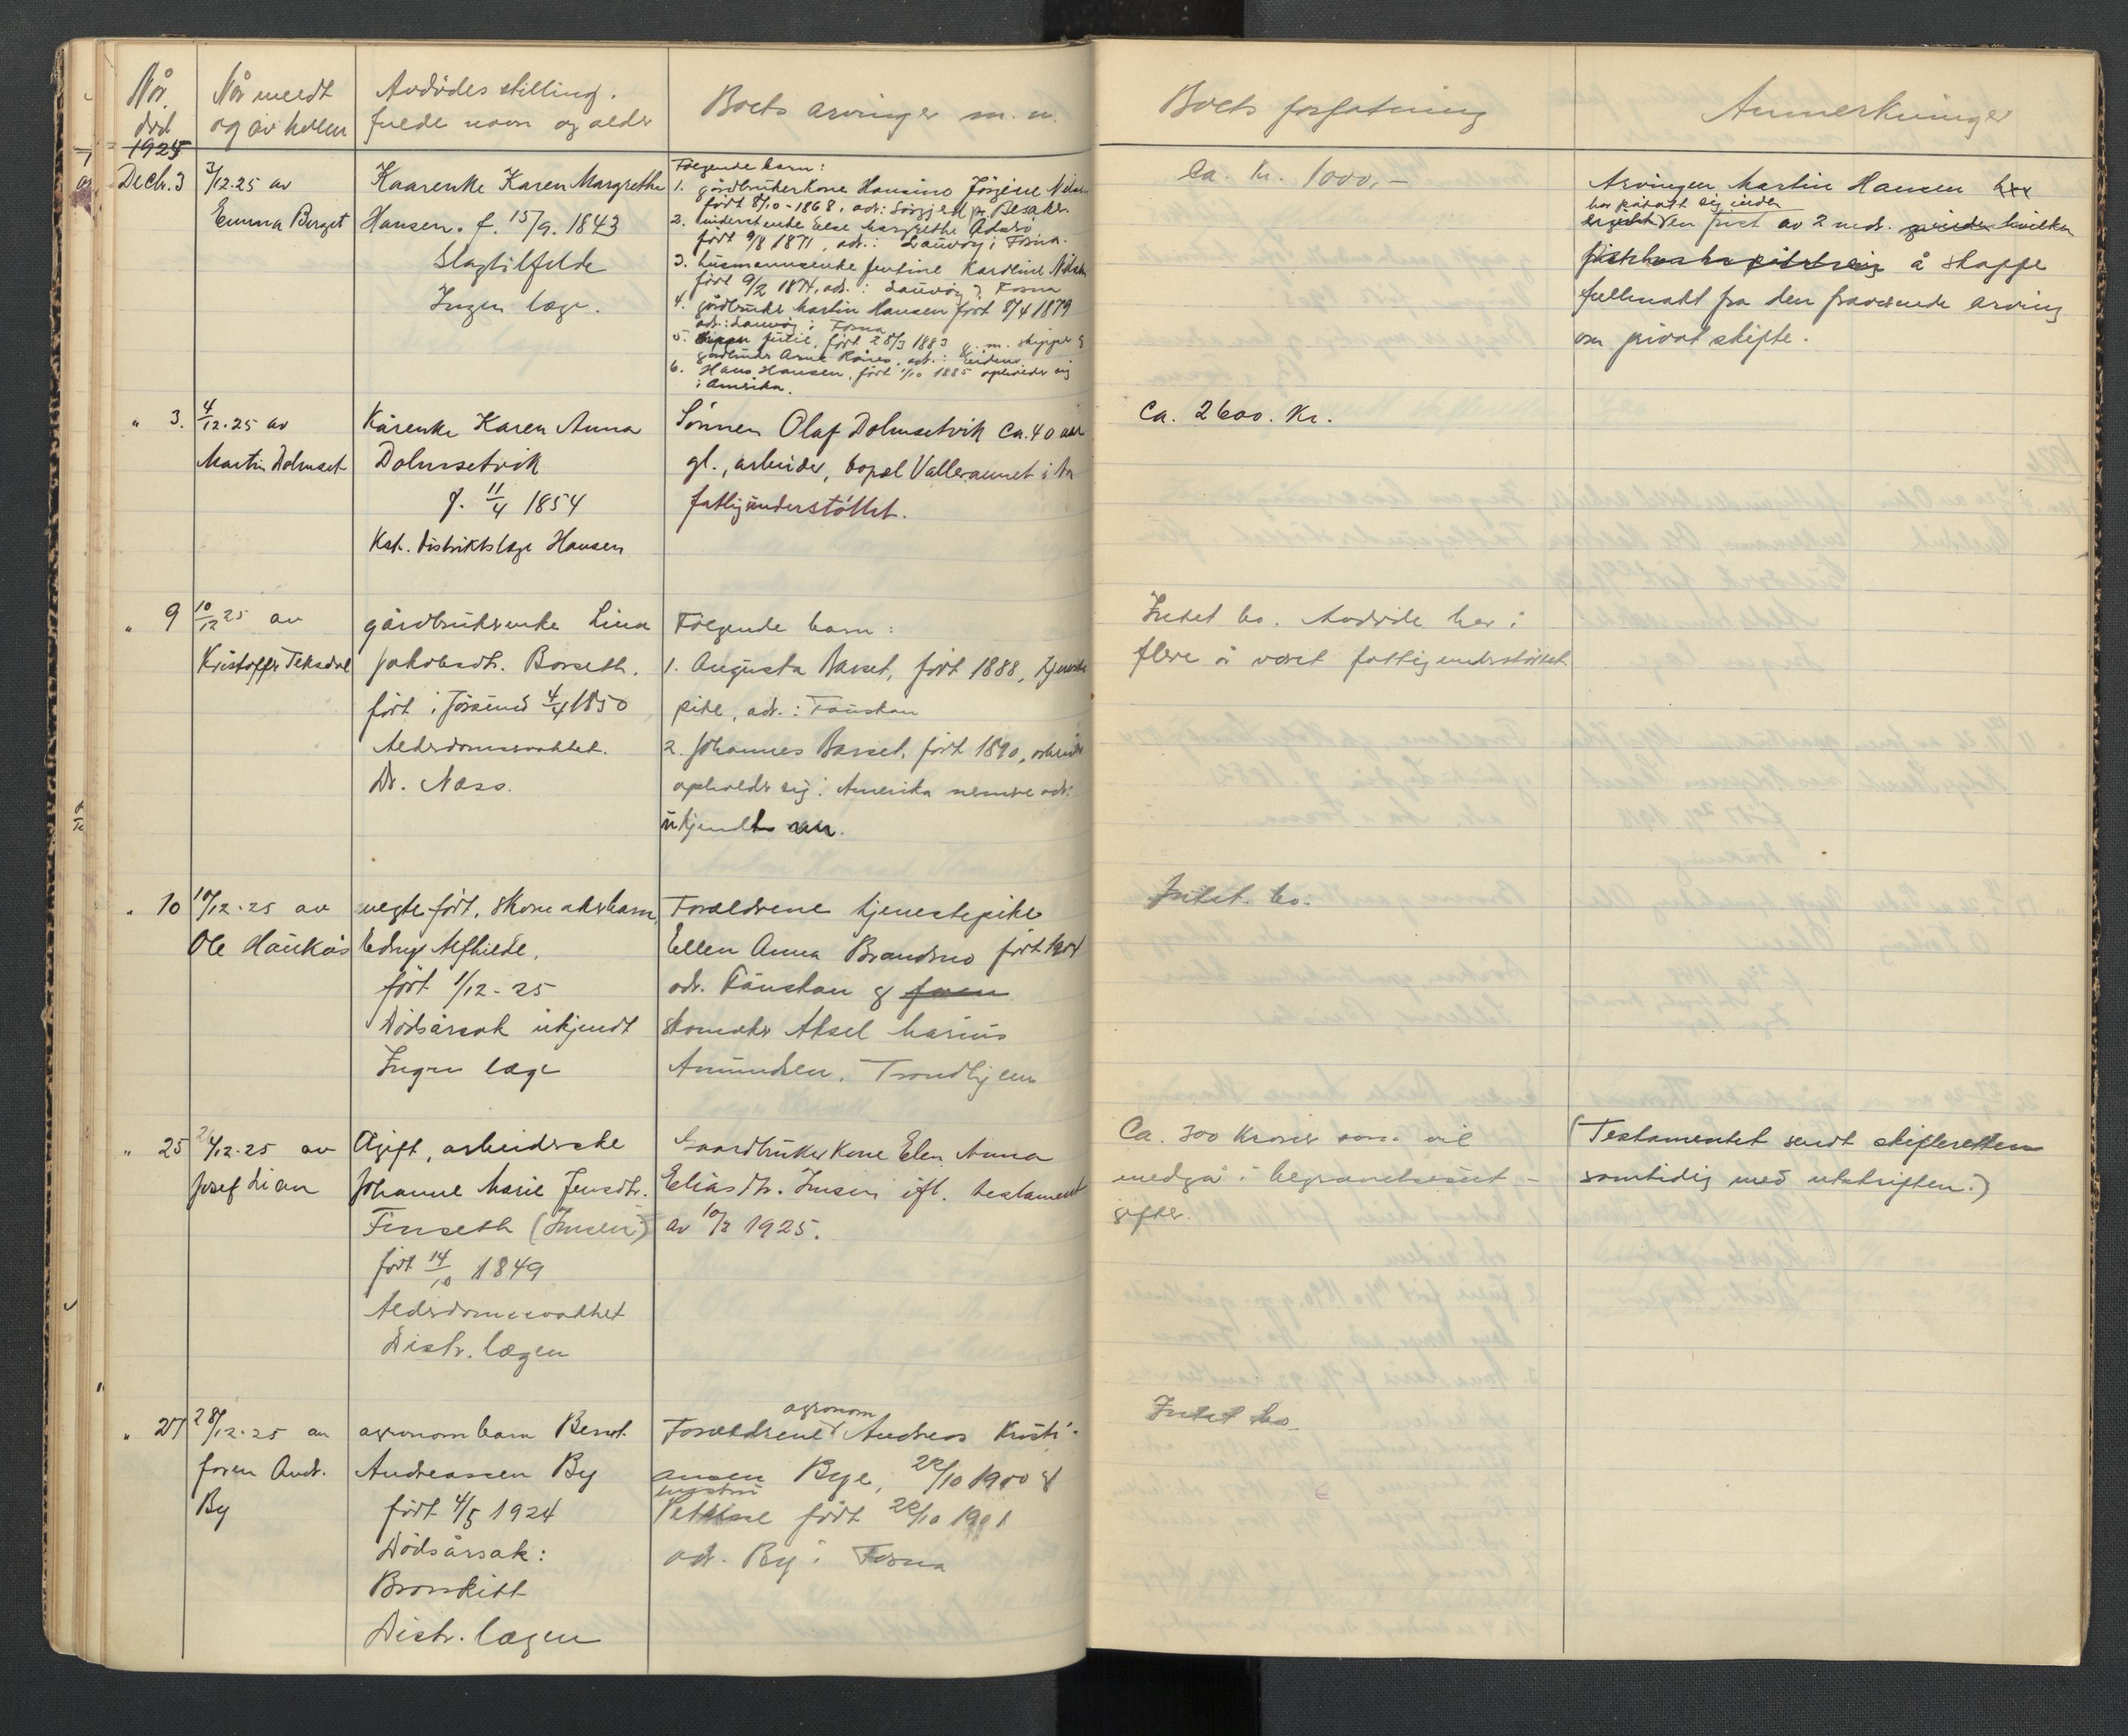 Når død
Når meldt og av hvem
Avdødes stilling, fulde navn og alder
Boets arvinger m. v.
Boets forfatning
Anmerkninger
1925
Decbr. 3
3/12.25 av
Emma Berget
Kaarenke Karen Margrethe
Hansen. f. 15/9. 1843
Slagtilfelde
Ingen læge.
Følgende barn:
1. gårdbrukerkone Hansine Jørgine Nilsen
født 8/10-1868, adr: Sörgjerd pr. Besaker.
2. Else Margrethe
født 9/8 1871, adr.: Lauvøy i Fosna.
3. husmannsenke Jentine Karoline Nilsen
født 9/2 1874, adr.: Lauvøy i Fosna
4. gårdbruker Martin Hansen født 8/4 1879
adr: Lauvøy i Fosna
5. Julie, født 28/3 1883 g. m. skipper &
gårdbruker Arne
6. Hans Hansen, født 1/10 1885 opholder sig
i Amerika.
Ca. kr. 1000,-
Arvingen Martin Hansen
har påtatt sig inden
en frist av 2 mdr. hvilken
å skaffe
fullmakt fra den fraværende arving
om privat skifte.
" 3.
4/12.25 av
Martin Dolmset
Kårenke Karen Anna
Dolmsetvik
f. 11/4 1854
Kst. distriktslæge Hansen
Sønnen Olaf Dolmsetvik ca. 40 aar
gl., arbeider, bopæl Vallersunnet i
fattigunderstøttet.
Ca. 2600. Kr.
" 9
10/12 25 av
Kristoffer Teksdal
gårdbrukerenke Lina
Jakobsdtr. Borseth.
født i Jössund 4/4 1850
Alderdomssvakhet.
Dr. Næss.
Følgende barn:
1. Augusta Barset, født 1888, tjeneste
pike, adr.: Fånstan
2. Johannes Barset, født 1890, arbeider
opholder sig i Amerika nermere adr.
ukjendt
Intet bo. Avdøde har i
flere år været fattigunderstøttet
" 10
10/12.25 av
Ole Haukås
uegte født, skomakerbarn
Alfhilde,
født 1/12-25
Dödsårsak ukjendt
Ingen læge
Forældrene tjenestepike
Ellen Anna Brandsmo født 1904
adr. Fånstan & faren
skomaker Aksel Marius
Amundsen, Trondhjem
Intet bo.
" 25
24/12.25 av
Josef Lian
Ugift, arbeiderske
Johanne Marie Jensdtr.
Finseth (Imsen)
født 14/10 1849
Alderdomssvakhet
Distr. lægen
Gaardbrukerkone Elen Anna
Eliasdtr. Imsen ifl. testament
av 10/2 1925.
Ca. 300 kroner som vil
medgå i begravelsesut-
gifter.
(Testamentet sendt skifteretten
samtidig med utskriften.)
" 27
28/12.25 av
faren Andr.
By
agronombarn Bernt
Andreassen By
født 4/5 1924
Dödsårsak:
Bronkitt
Distr. lægen
agronom
Forældrene Andreas Kristi-
ansen Bye, 22/10 1900 &
hustru
Petrine født 22/10 1901
adr. By i Fosna
Intet bo